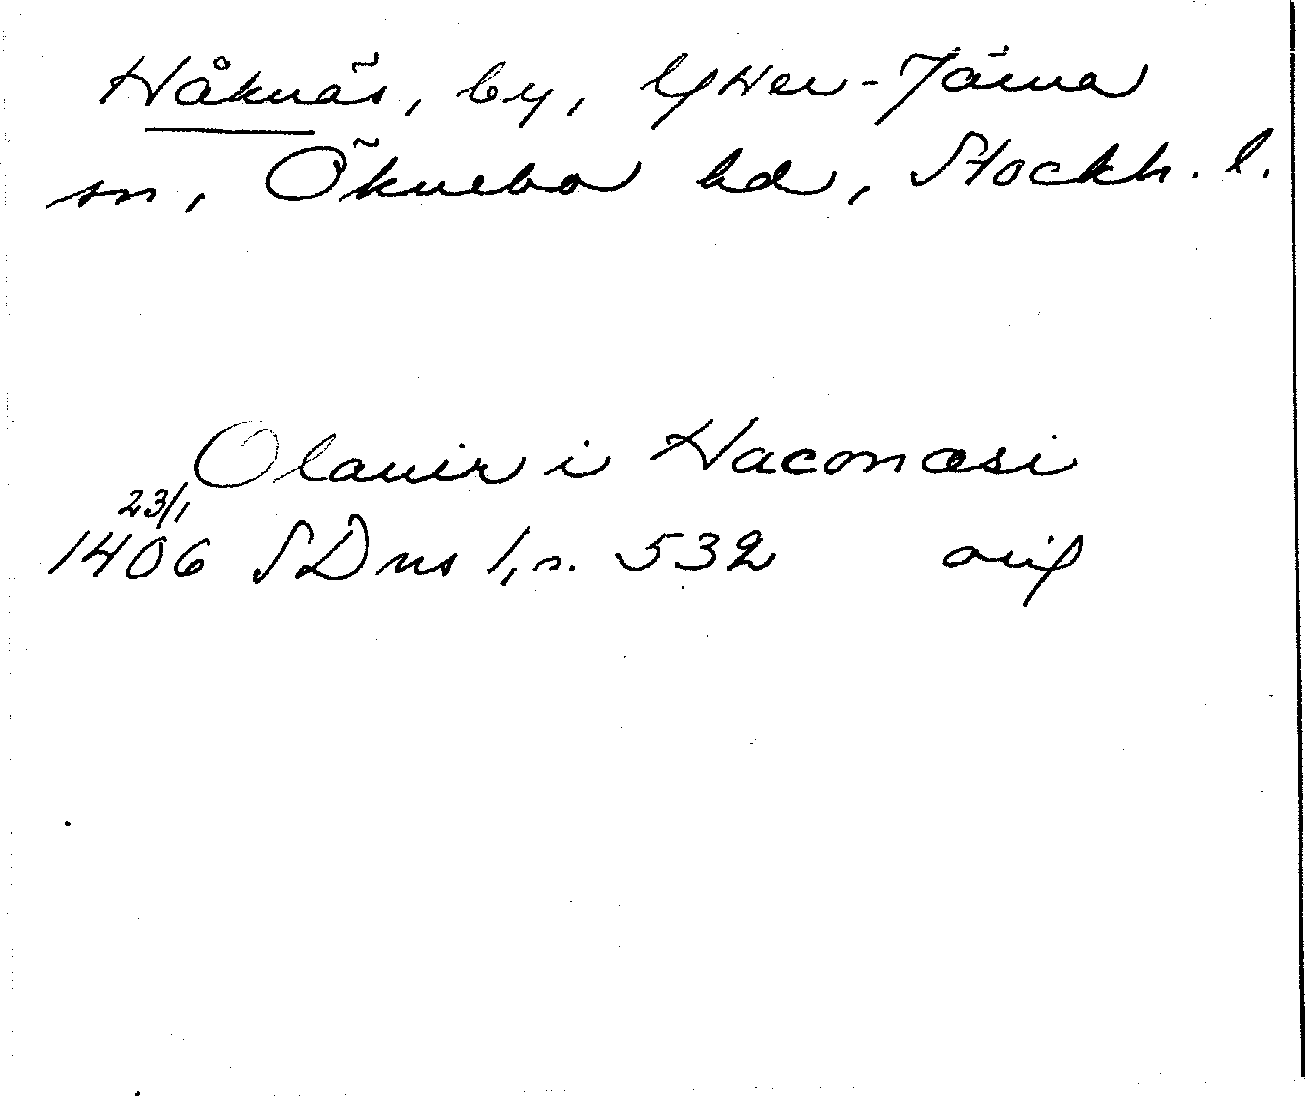 Håknäs, by, Ytter-Järna
sn, Öknebo hd, Stockh. l.
Olauir i Haconæsi
23/1
1406 SDns 1, s. 532 orig